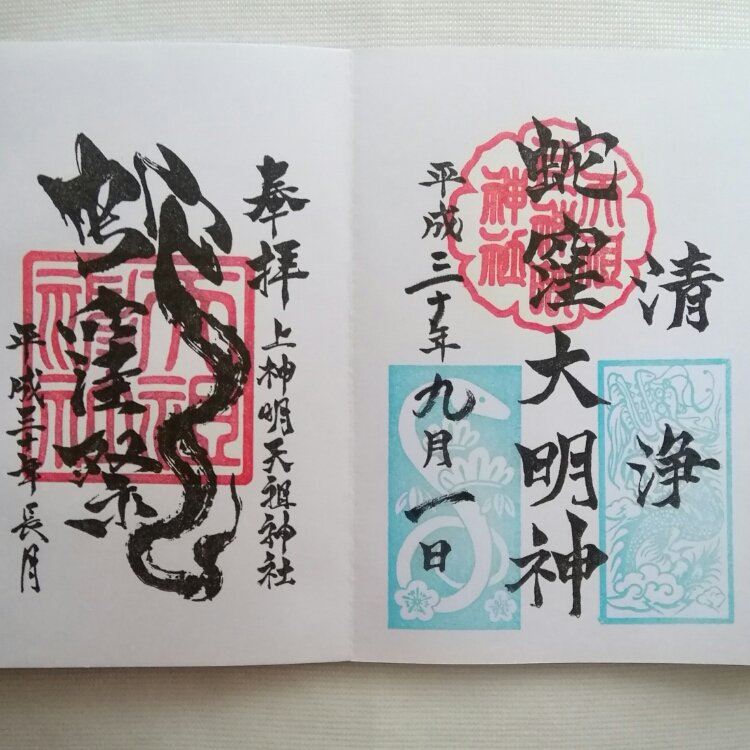 清浄
蛇窪大明神
平成三十年九月一日
奉拝
上神明天祖神社
蛇窪祭
平成三十年長月